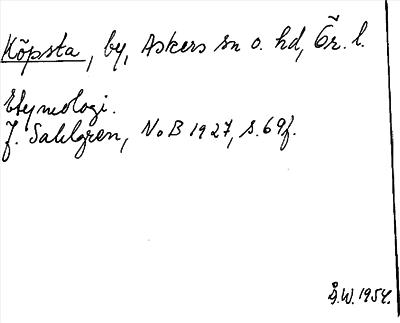 Köpsta, by, Askers sn o. hd, Ör. l.
Etymologi.
J. Sahlgren, NoB 1927, s. 69f.
Å.W. 1954.